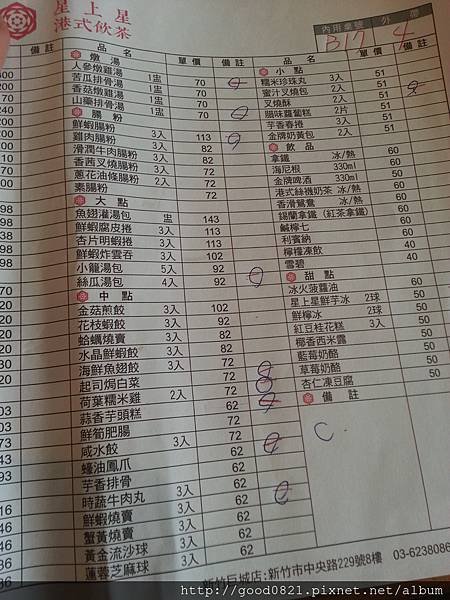 星上星
港式飲茶
內用桌號 外帶
B17 4
備註 品名 單價 備註
燉湯
人參燉雞湯 1盅
苦瓜排骨湯 1盅 70
香菇燉雞湯 1盅 70
山藥排骨湯 1盅 70
腸粉
鮮蝦腸粉 3入 113
雞肉腸粉 3入 82
滑潤牛肉腸粉 3入 82
香茜叉燒腸粉 3入 72
蔥花油條腸粉 2入 72
素腸粉 72
大點
魚翅灌湯包 盅 143
鮮蝦腐皮捲 3入 113
杏片明蝦捲 3入 113
鮮蝦炸雲吞 3入 102
小籠湯包 5入 92
絲瓜湯包 4入 92
中點
金菇煎餃 3入 102
花枝蝦餃 3入 92
蛤蠣燒賣 3入 82
水晶鮮蝦餃 3入 82
海鮮魚翅餃 3入 72
起司焗白菜 72
荷葉糯米雞 2入 72
蒜香芋頭糕 62
鮮筍肥腸 72
咸水餃 3入 62
蠔油鳳爪 62
芋香排骨 62
時蔬牛肉丸 3入 62
鮮蝦燒賣 3入 62
蟹黃燒賣 3入 62
黃金流沙球 3入
蓮蓉芝麻球 3入
品名 單價 備註
小點
糯米珍珠丸 3入 51
蜜汁叉燒包 2入 51
叉燒酥 2入 51
臘味蘿蔔糕 2片 51
芋香春捲 3入 51
金牌奶黃包 2入 51
飲品
拿鐵 冰/熱 60
海尼根 330ml 60
金牌啤酒 330ml 50
港式絲襪奶茶 冰/熱 60
香滑鴛鴦 冰/熱 60
錫蘭拿鐵(紅茶拿鐵) 60
鹹檸七 60
利賓納 60
檸檬凍飲 40
雪碧 40
甜點
冰火菠蘿油 60
星上星鮮芋冰 2球 50
鮮檸冰 2球 50
紅豆桂花糕 3入 50
椰香西米露 50
藍莓奶酪 50
草莓奶酪 50
杏仁凍豆腐 50
備註
C.
新竹巨城店:新竹市中央路229號8樓 03-6238086
http://good0821.pixnet.net/album